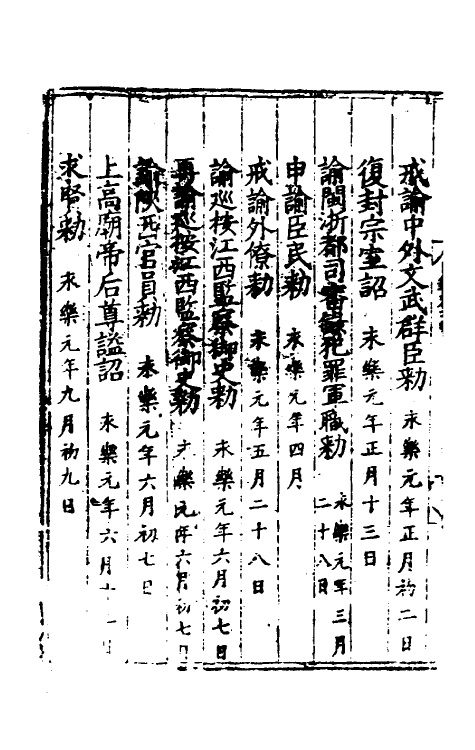 戒諭中外文武群臣勑 永樂元年正月初二日
復封宗室詔 永樂元年正月十三日
諭閩浙都司審錄犯罪軍職勑 永樂元年三月二十八日
申諭臣民勑 永樂元年四月
戒諭外僚勑 永樂元年五月二十八日
諭巡按江西監察御史勑 永樂元年六月初七日
再諭巡按江西監察御史勑 永樂元年六月初七日
諭陝西官員勑 永樂元年六月初七日
上高廟帝后尊謚詔 永樂元年六月十一日
求賢勑 永樂元年九月初九日